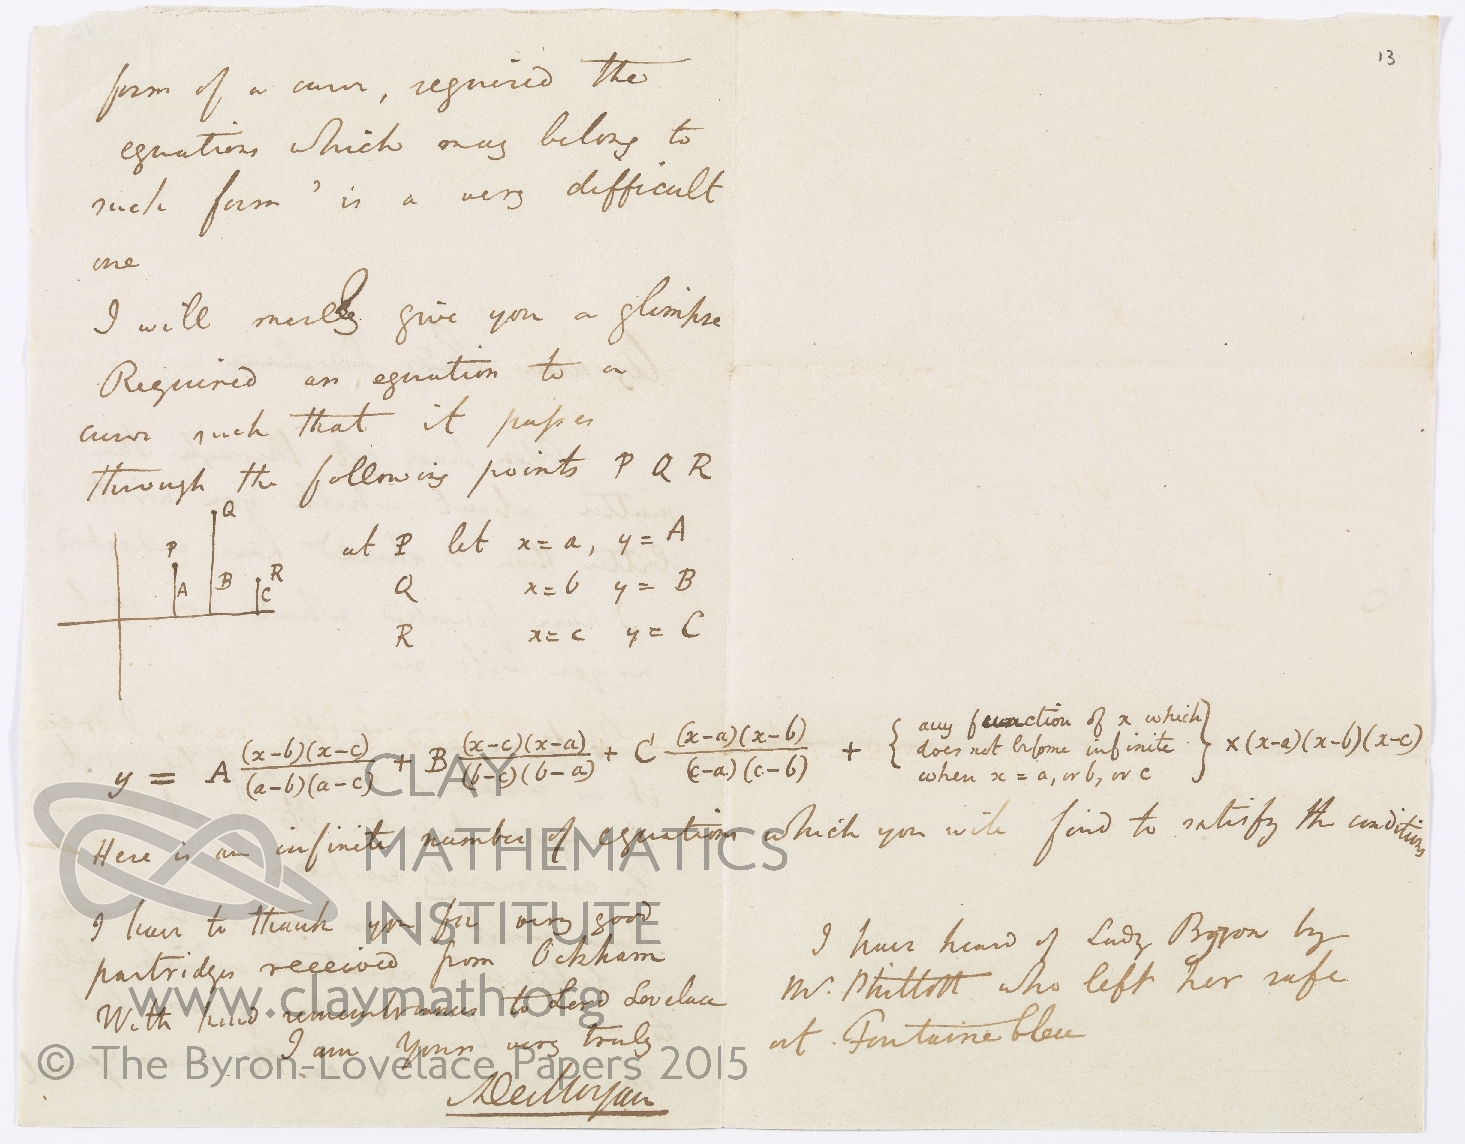 13
form of a curve, required the
equations which may belong to
such form' is a very difficult
one
I will merely give you a glimpse
Required an equation to a
curve such that it passes
through the following points P Q R
Q
P
R
A
B
C
at P let x = a, y = A
Q x = b y = B
R x = c y = C
y = A (x-b)(x-c)/(a-b)(a-c) + B (x-c)(x-a)/(b-c)(b-a) + C (x-a)(x-b)/(c-a)(c-b) + { any function of x which does not become infinite when x = a, or b, or c } × (x-a)(x-b)(x-c)
Here is an infinite number of equations which you will find to satisfy the conditions
I have to thank you for very good
partridges received from Ockham
With kind remembrances to Lord Lovelace
I am Yours very truly
ADeMorgan
I have heard of Lady Byron by
Mr. Philtott who left her safe
at Fontainebleu
CLAY
MATHEMATICS
INSTITUTE
www.claymath.org
© The Byron-Lovelace Papers 2015